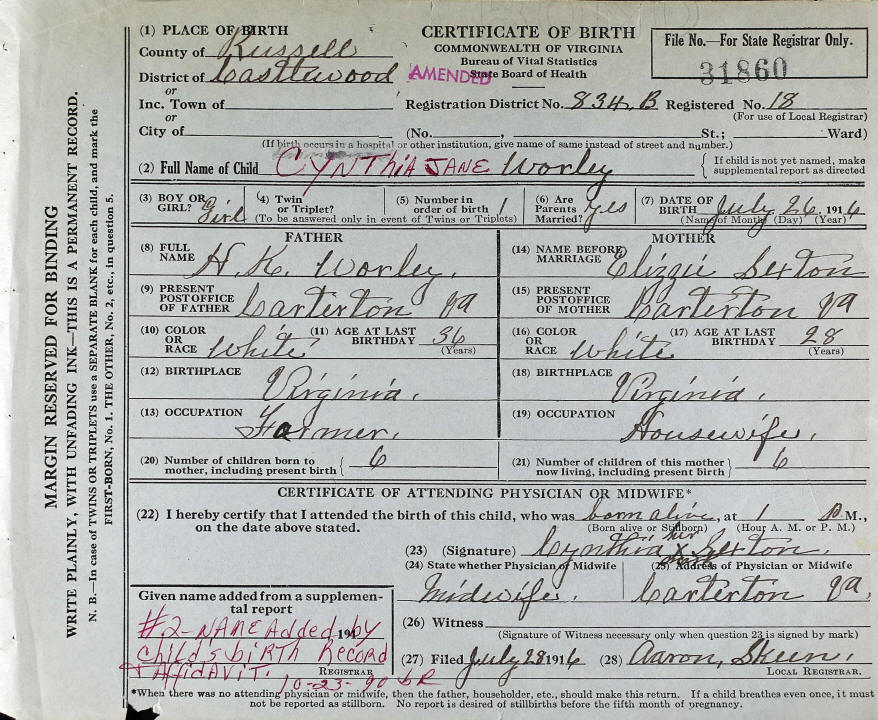 (1) PLACE OF BIRTH
County of Russell
District of Castlewood
or
Inc. Town of
or
City of
CERTIFICATE OF BIRTH
COMMONWEALTH OF VIRGINIA
Bureau of Vital Statistics
State Board of Health
AMENDED
File No.—For State Registrar Only.
31860
Registration District No. 834 B Registered No. 18
(For use of Local Registrar)
(No. , St.; Ward)
(If birth occurs in a hospital or other institution, give name of same instead of street and number.)
(2) Full Name of Child CYNTHiA JANE Worley
{ If child is not yet named, make
supplemental report as directed
(3) BOY OR GIRL? Girl
(4) Twin or Triplet?
(5) Number in order of birth 1
(To be answered only in event of Twins or Triplets)
(6) Are Parents Married? yes
(7) DATE OF BIRTH July 26, 1916
(Name of Month) (Day) (Year)
FATHER
(8) FULL NAME H. K. Worley.
(9) PRESENT POSTOFFICE OF FATHER Carterton Va
(10) COLOR OR RACE White
(11) AGE AT LAST BIRTHDAY 36
(Years)
(12) BIRTHPLACE
Virginia.
(13) OCCUPATION
Farmer.
(20) Number of children born to mother, including present birth { 6
MOTHER
(14) NAME BEFORE MARRIAGE Elizzie Sexton
(15) PRESENT POSTOFFICE OF MOTHER Carterton Va
(16) COLOR OR RACE White
(17) AGE AT LAST BIRTHDAY 28
(Years)
(18) BIRTHPLACE
Virginia.
(19) OCCUPATION
Housewife.
(21) Number of children of this mother now living, including present birth { 6
CERTIFICATE OF ATTENDING PHYSICIAN OR MIDWIFE*
(22) I hereby certify that I attended the birth of this child, who was born alive, at 1 P M.,
on the date above stated.
(Born alive or Stillborn) (Hour A. M. or P. M.)
(23) (Signature) Cynthia her X mark Sexton.
(24) State whether Physician or Midwife
Midwife.
(25) Address of Physician or Midwife
Carterton Va.
(26) Witness
(Signature of Witness necessary only when question 23 is signed by mark)
(27) Filed July 28 1916 (28) Aaron, Skeen.
LOCAL REGISTRAR.
Given name added from a supplemen-
tal report
#2-NAME Added by 191
Child's biRTH Record
+ AffidAViT.
REGISTRAR
10-23-90 bR
*When there was no attending physician or midwife, then the father, householder, etc., should make this return. If a child breathes even once, it must
not be reported as stillborn. No report is desired of stillbirths before the fifth month of pregnancy.
MARGIN RESERVED FOR BINDING
WRITE PLAINLY, WITH UNFADING INK—THIS IS A PERMANENT RECORD.
N. B.—In case of TWINS OR TRIPLETS use a SEPARATE BLANK for each child, and mark the
FIRST-BORN, No. 1. THE OTHER, No. 2, etc., in question 5.